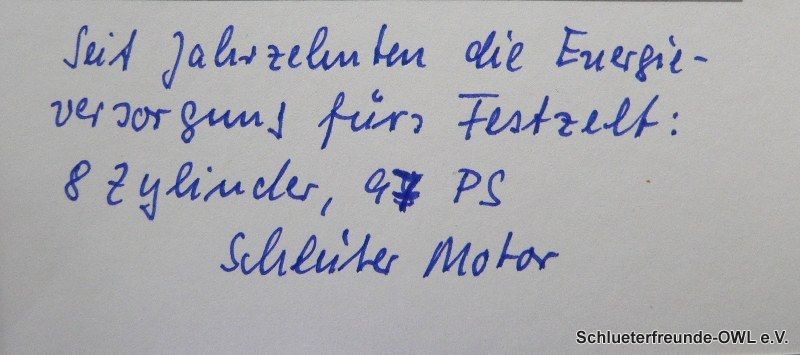 Seit Jahrzehnten die Energie-
versorgung fürs Festzelt:
8 Zylinder, PS
Schlüter Motor
Schlueterfreunde-OWL e.V.